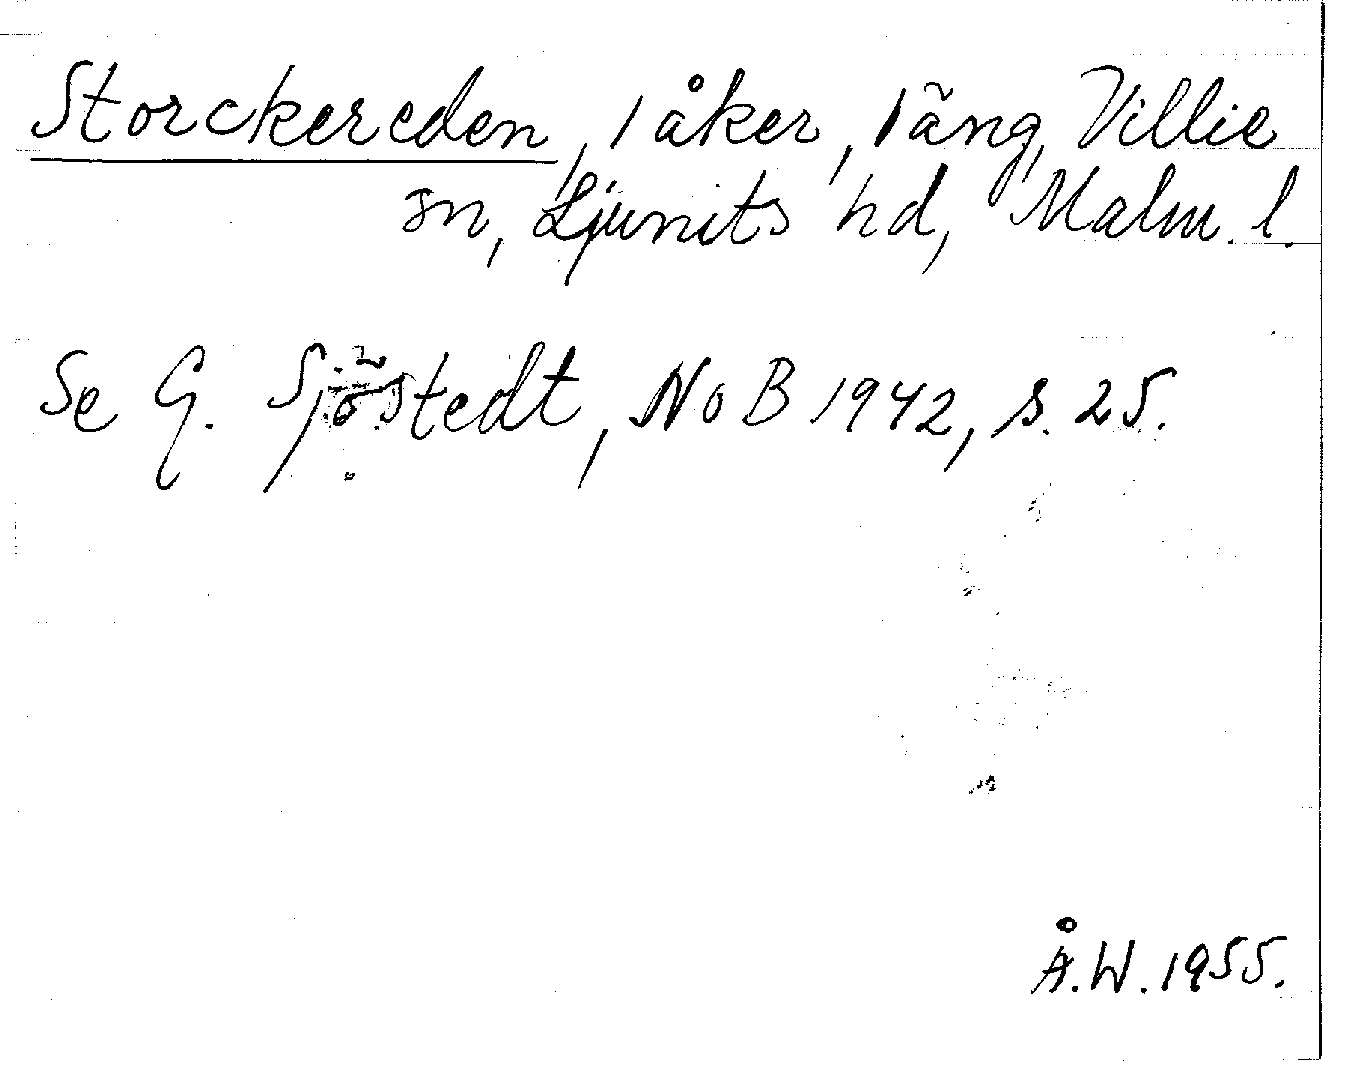 Storckereden, 1 åker, 1 äng, Villie
sn, Ljunits hd, Malm. l.
Se G. Sjöstedt, NoB 1942, s. 25.
Å.W. 1955.